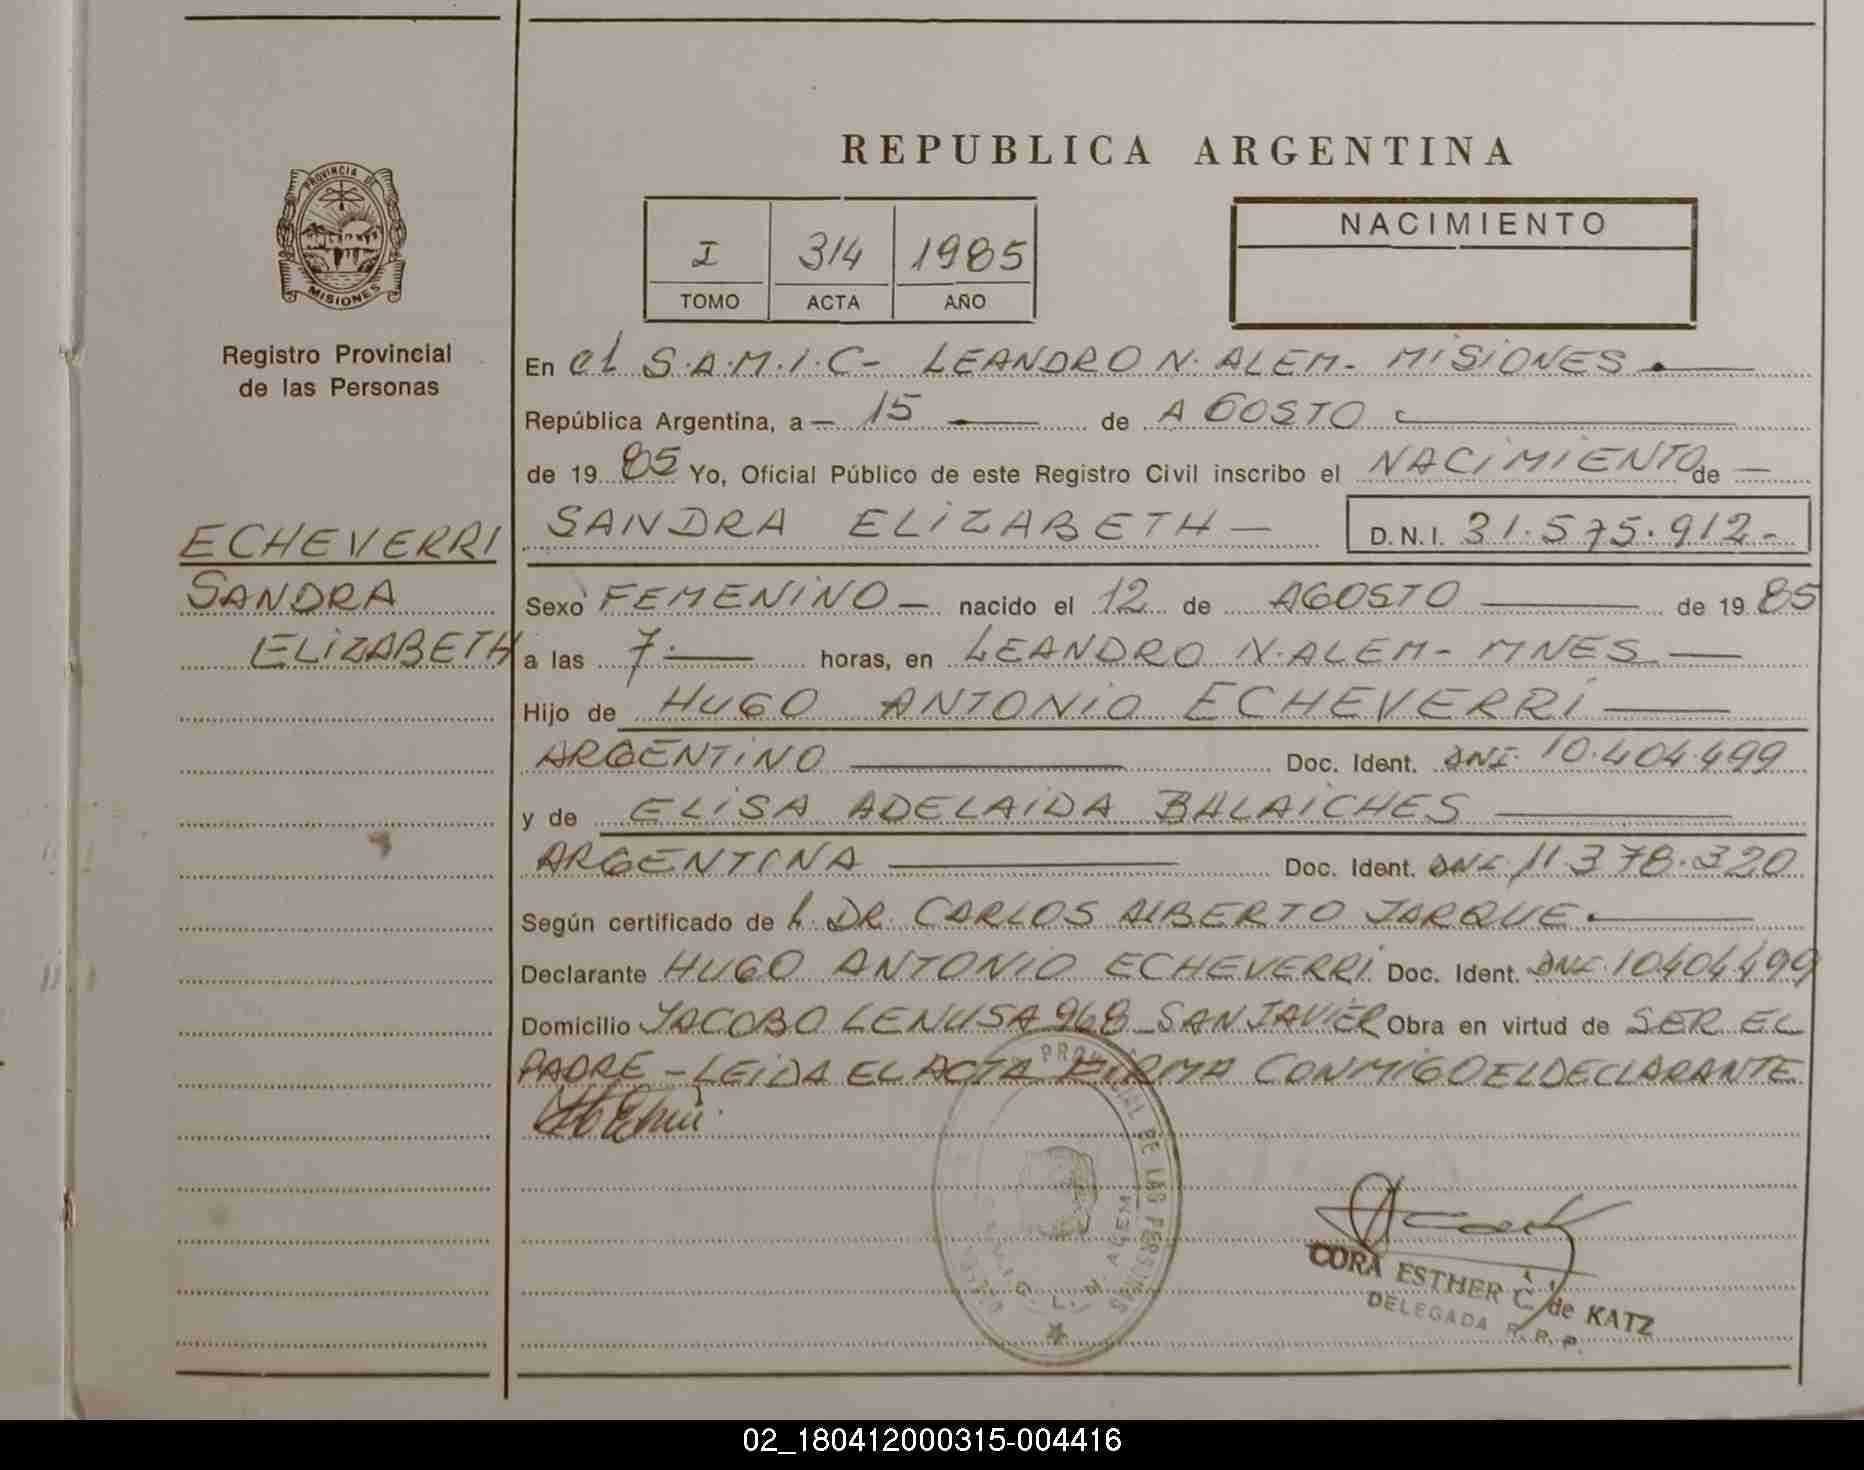 REPUBLICA ARGENTINA
PROVINCIA DE
MISIONES
Registro Provincial
de las Personas
I 314 1985
TOMO ACTA AÑO
NACIMIENTO
En el S.A.M.I.C- LEANDRO N. ALEM- MISIONES.
República Argentina, a - 15 - de AGOSTO
de 19 85 Yo, Oficial Público de este Registro Civil inscribo el NACIMIENTO de -
SANDRA ELIZABETH - D.N.I. 31.575.912.-
ECHEVERRI
SANDRA
ELIZABETH
Sexo FEMENINO - nacido el 12 de AGOSTO - de 19 85
a las 7.- horas, en LEANDRO N. ALEM- MNES -
Hijo de HUGO ANTONIO ECHEVERRI -
ARGENTINO - Doc. Ident. DNI. 10.404.499
y de ELISA ADELAIDA BALAICHES -
ARGENTINA - Doc. Ident. DNI 11378.320
Según certificado de DR. CARLOS ALBERTO JARQUE.-
Declarante HUGO ANTONIO ECHEVERRI Doc. Ident. DNI. 10404499
Domicilio JACOBO LENUSA 968 SAN JAVIER Obra en virtud de SER EL
PADRE - LEIDA EL ACTA FIRMA CONMIGO EL DECLARANTE
PROVINCIAL DE LAS PERSONAS
L. N. ALEM
CORA ESTHER C. de KATZ
DELEGADA R. R. P.
02_180412000315-004416